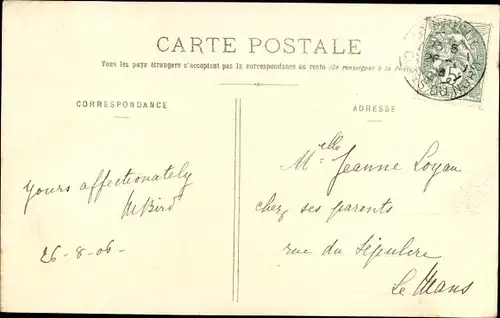 CARTE POSTALE
Tous les pays étrangers n'acceptent pas la correspondance au recto (Se renseigner à la Poste)
CORRESPONDANCE
ADRESSE
Yours affectionately
MBird
26-8-06
Melle Jeanne Loyau
chez ses parents
rue du Sépulcre
Le Mans